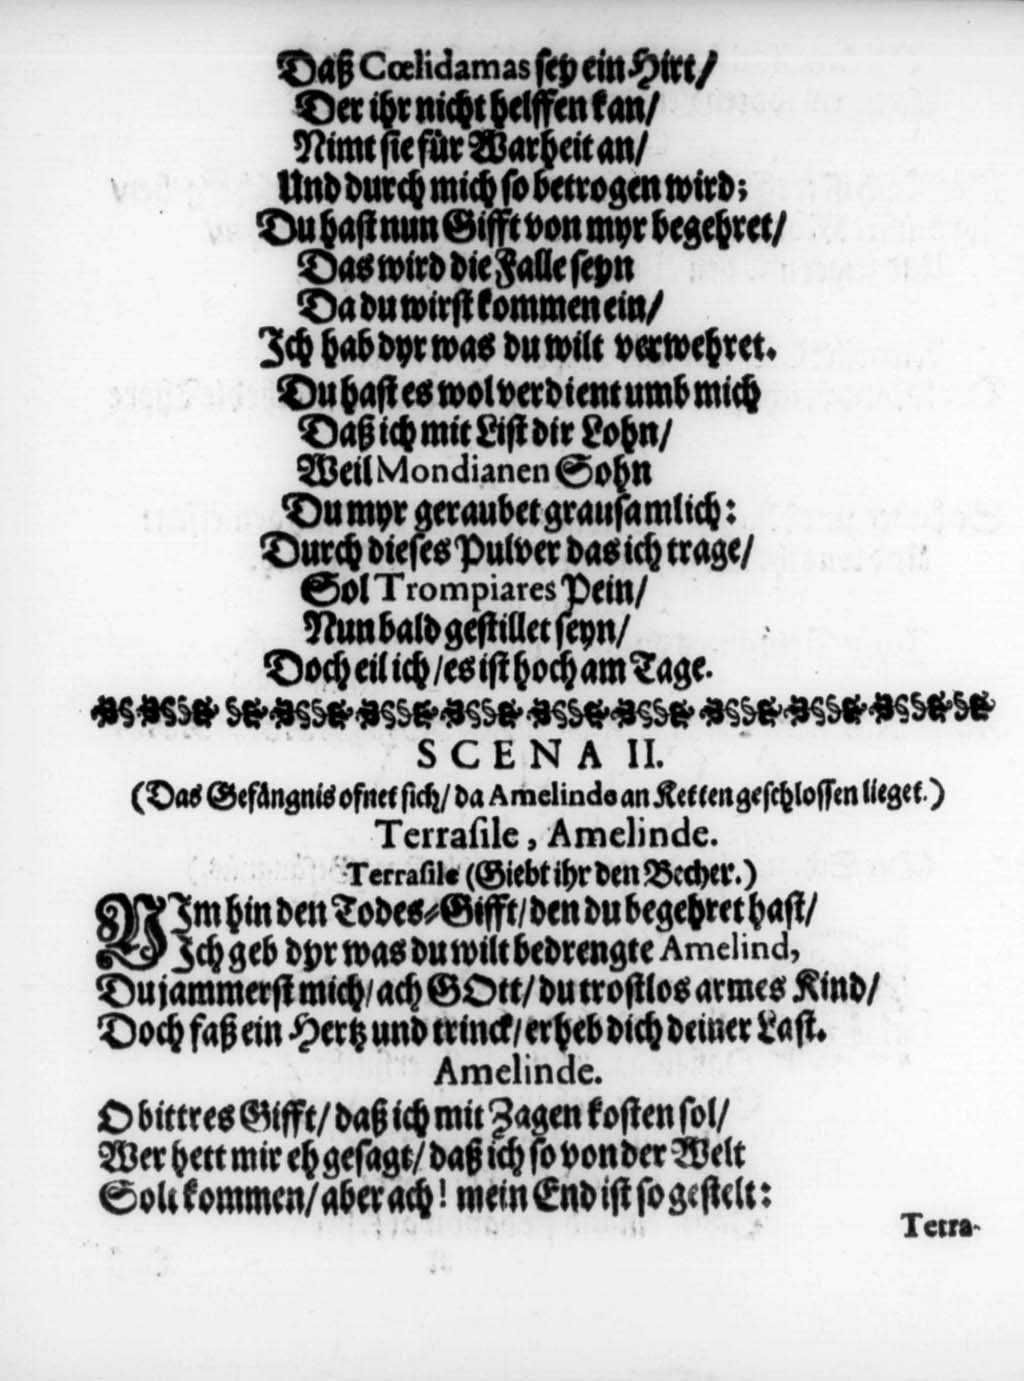 Daß Cœlidamas sey ein Hirt/
Der ihr nicht helffen kan/
Nimt sie für Warheit an/
Und durch mich so betrogen wird;
Du hast nun Gifft von myr begehret/
Das wird die Falle seyn
Da du wirst kommen ein/
Ich hab dyr was du wilt verwehret.
Du hast es wol verdient umb mich
Daß ich mit List dir Lohn/
Weil Mondianen Sohn
Du myr geraubet grausamlich:
Durch dieses Pulver das ich trage/
Sol Trompiares Pein/
Nun bald gestillet seyn/
Doch eil ich/ es ist hoch am Tage.
SCENA II.
(Das Gefängnis ofnet sich/ da Amelinde an Ketten geschlossen lieget.)
Terrasile, Amelinde.
Terrasile (Giebt ihr den Becher.)
NIm hin den Todes-Gifft/ den du begehret hast/
Ich geb dyr was du wilt bedrengte Amelind,
Du jammerst mich/ ach GOtt/ du trostlos armes Kind/
Doch faß ein Hertz und trinck/ erheb dich deiner Last.
Amelinde.
O bittres Gifft/ daß ich mit Zagen kosten sol/
Wer hett mir eh gesagt/ daß ich so von der Welt
Solt kommen/ aber ach! mein End ist so gestelt:
Tetra-